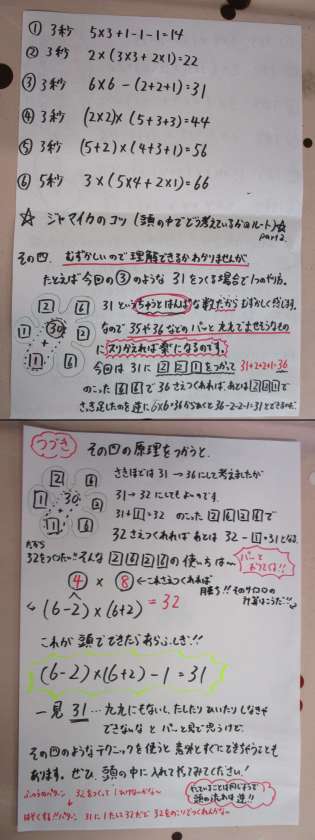 ① 3秒 5×3+1-1-1=14
② 3秒 2×(3×3+2×1)=22
③ 3秒 6×6-(2+2+1)=31
④ 3秒 (2×2)×(5+3+3)=44
⑤ 3秒 (5+2)×(4+3+1)=56
⑥ 5秒 3×(5×4+2×1)=66
☆ ジャマイカのコツ (頭の中でどう考えているかのルート)☆
part2.
その四. むずかしいので理解できるかわかりませんが、
たとえば今回の③のような 31をつくる場合で1つのやり方。
2 6
1 30 2
+
1 6
31という ちゅうとはんぱな数だからむずかしく感じます。
なので 35や36などのパーと九九でだせそうなもの
にスリかえれば楽になるのです。
今回は 31に 2 2 1 をつかって 31+2+2+1=36
のこった 6 6 で 36さえつくれれば、あとは 2 2 1 で
さっき足したのを逆に 6×6=36からひくと 36-2-2-1=31とできるのだ。
つづき その四の原理をつかうと、
2 6
1 30 2
+
1 6
さきほどは 31→36にして考えましたが
31→32にしてもよいのです。
31+1=32 のこった 2 6 2 6 で
32さえつくれれば あとは 32-1=31となる。
だから
32をつくりたい!! そんな 2 6 2 6 の使いちは〜
パーと
おうてる!!
4 × 8 ←これさえつくれれば
(6-2)×(6+2) =32
これが頭でできたらあらふしぎ!!
(6-2)×(6+2)-1=31
一見 31…九九にもないし、たしたりひいたりしなきゃ
できないな と パーと見で思うけど、
その四のようなテクニックを使うと 意外とすぐにできちゃうことも
あります。ぜひ、頭の中に入れてやってみてください!
ふつうのパターン 32をつくって1ひけないかな〜
↓
はやくする!!パターン 31に1たして32だ 32をのこりでつくれんかな〜
やっていることは同じようで
頭の流れは違う!!